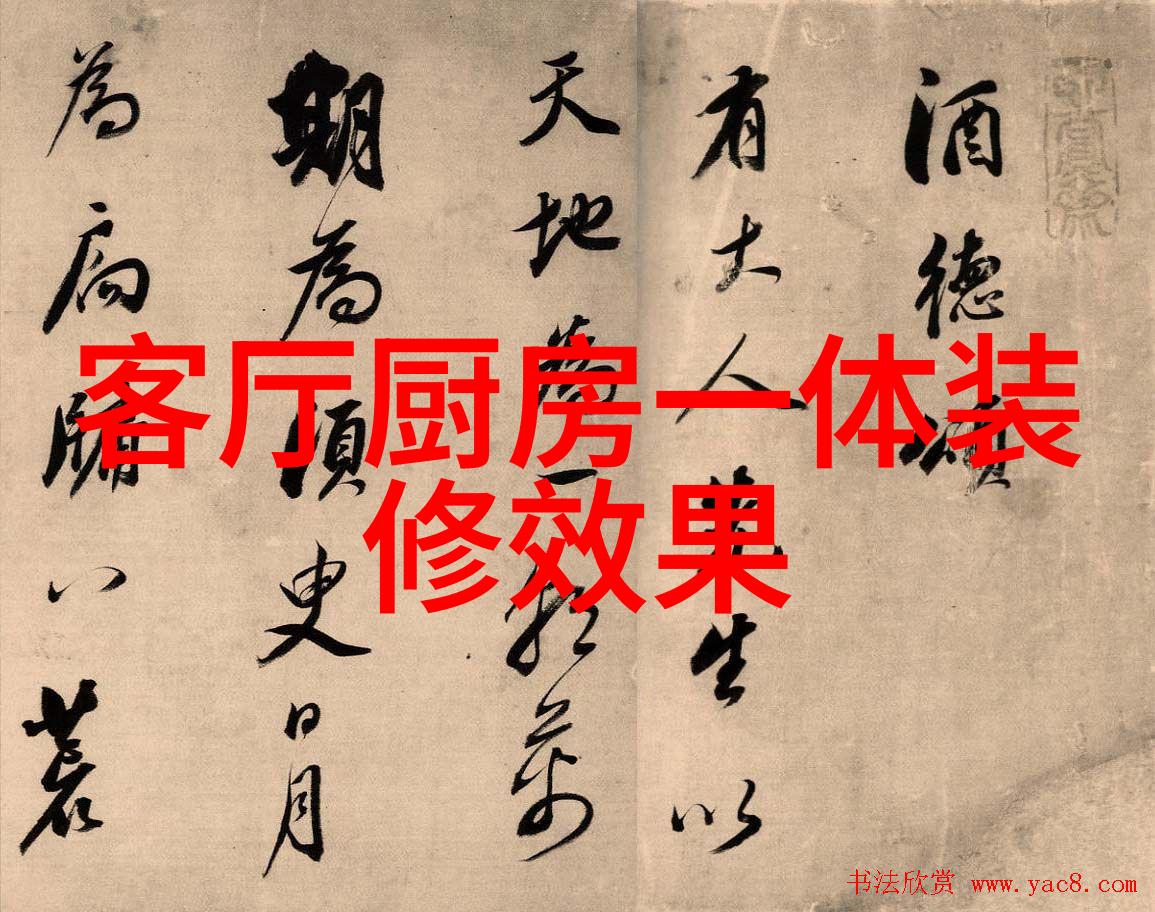 酒德頌
有大人先生以
天地為一朝萬
期為須臾日月
為扃牖八荒
客厅厨房一体装
修效果
书法欣赏 www.yac8.com